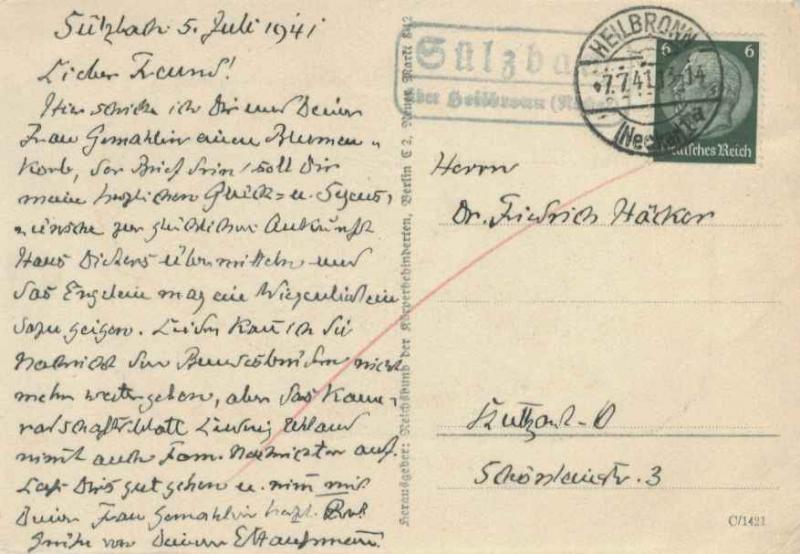 Sülzbach 5. Juli 1941
Lieber Freund!
Hier schicke ich Dir und Deiner
Frau Gemahlin einen Blumen-
korb, der Brief drin soll Dir
meine herzlichen Glück- u. Segens-
wünsche zur glücklichen Ankunft
Hans Dieters übermitteln und
das Engelein mag ein Wiegenliedlein
dazu geigen. Leider kann ich die
Nachricht den Bundesbrüdern nicht
mehr weitergeben, aber das Kame-
radschaftsblatt Ludwig Uhland
nimmt auch Fam. Nachrichten auf.
Lass Dirs gut gehen u. nimm mit
Deiner Frau Gemahlin herzl.
Grüße von Deinem
Herausgeber: Reichsbund der Körperbehinderten, Berlin C 2, Neuer Markt 8-12
Sülzbach
über Heilbronn (Neckar)
HEILBRONN
7.7.41.13-14
(Neckar)
6 6
Deutsches Reich
Herrn
Dr. Friedrich Häcker
Stuttgart-O
Schönleinstr. 3
C/1421